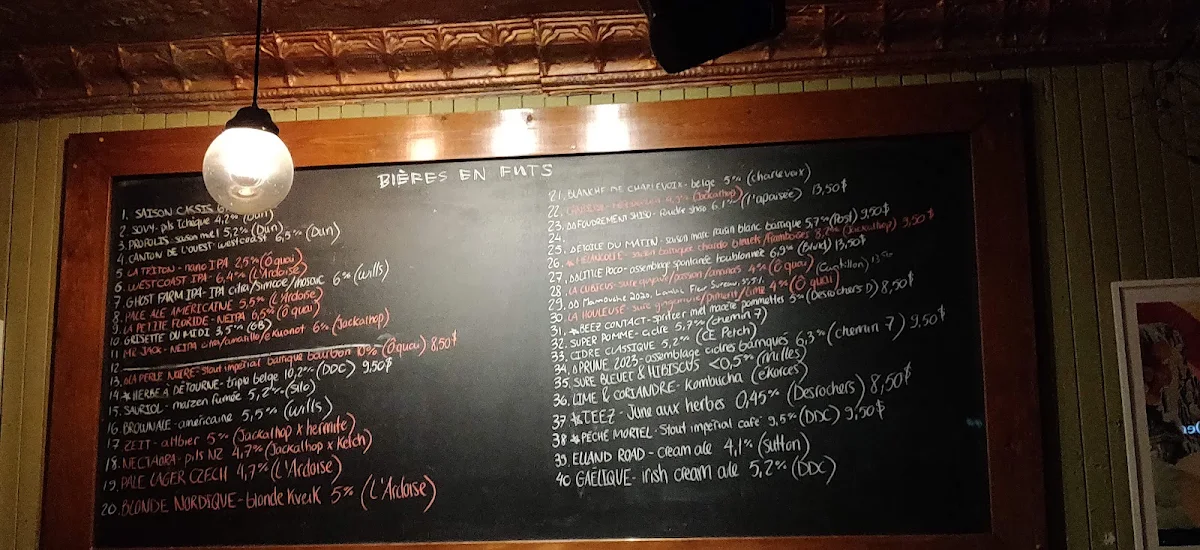 BIÈRES EN FUTS
1. SAISON CASSIS 6
2. SOVY- pils tchèque 4,2% (Dun)
3. PROPOLIS- saison miel 5,2% (Dun)
4. CANTON DE L'OUEST- westcoast 6,5% (Dun)
5 LA TRITON- nano IPA 2,5% (Ô quai)
6 WESTCOAST IPA- 6,4% (L'Ardoise)
7. GHOST FARM IPA- IPA citra/simcoe/mosaic 6% (wills)
8. PALE ALE AMÉRICAINE 5,5% (L'Ardoise)
9. LA PETITE FLORIDE- NEIPA 6,5% (Ô quai)
10. GRISETTE DU MIDI 3,5% (GB)
11 MR JACK- NEIPA citra/amarillo/ekuanot 6% (Jackalhop)
12
13. ΔLA PERLE NOIRE- Stout impérial barrique bourbon 10% (Ô quai) 8,50$
14 * HERBE À DÉTOURNE- triple belge 10,2% (DDC) 9,50$
15. SAURIOL- marzen fumée 5,2% (Silo)
16. BROWNALE- américaine 5,5% (wills)
17 ZEIT- altbier 5% (Jackalhop x hermite)
18. NECTARRA- pils NZ 4,7% (Jackalhop x Ketch)
19. PALE LAGER CZECH 4,7% (L'Ardoise)
20. BLONDE NORDIQUE- blonde Kveik 5% (L'Ardoise)
21. BLANCHE DE CHARLEVOIX- belge 5% (charlevoix)
22. 4,5% (Jackalhop)
23. ΔΔ FOUDREMENT SHISO- foudre shiso 6,1% (l'apaisée) 13,50$
24.
25. ΔETOILE DU MATIN- saison marc raisin blanc barrique 5,7% (Post) 9,50$
26. * MÉLANCOLIE- saison barriquée chardo bleuets/framboises 8,2% (Jackalhop) 9,50$
27. ΔΔLITTLE POCO- assemblage spontanée houblonnée 6,5% 13,50$
28. LA CUBICUS- sure goyave/passion/ananas 4% (Ô quai)
29. ΔΔ Mamouche 2020. Lambic Fleur Sureau, 5,5% (Cantillon) 13
30. LA HOULEUSE- sure gingembre/piment/lime 4% (Ô quai)
31. * BEEZ CONTACT- spritzer miel macéré pommettes 5% (Desrochers D) 8,50$
32. SUPER POMME- cidre 5,7% (chemin 7)
33. CIDRE CLASSIQUE 5,2% (CE Petch)
34. ΔPRUNE 2023- assemblage cidres barriqués 6,3% (chemin 7) 9,50$
35. SURE BLEUET & HIBISCUS <0,5% (milles)
36. LIME & CORIANDRE- kombucha (ékorces)
37 * TEEZ- June aux herbes 0,45% (Desrochers) 8,50$
38 * PÉCHÉ MORTEL- Stout impérial café 9,5% (DDC) 9,50$
39. ELLAND ROAD- cream ale 4,1% (Sutton)
40 GAÉLIQUE- irish cream ale 5,2% (DDC)